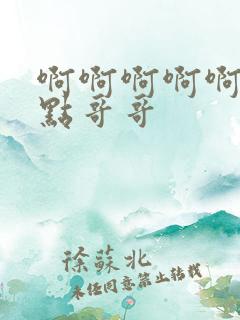 啊啊啊啊啊
點哥哥
徐蘇北
未任同意禁止转载